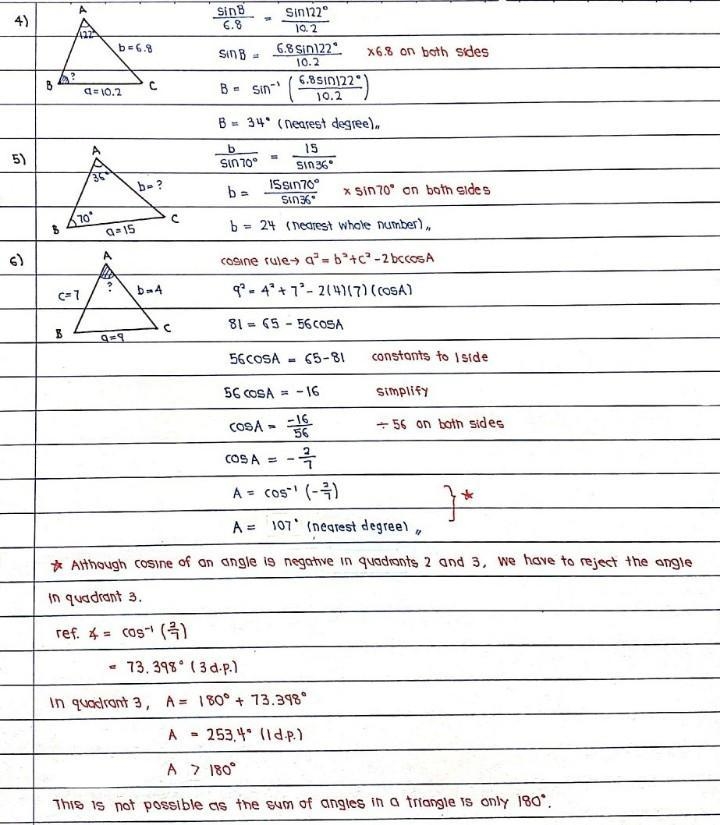 4)
A
122°
b=6.8
B
?
a=10.2
C
sinB/6.8 = sin122°/10.2
sinB = 6.8sin122°/10.2 x6.8 on both sides
B = sin⁻¹ (6.8sin122°/10.2)
B = 34° (nearest degree)„
5)
A
36°
b=?
B
70°
a=15
C
b/sin70° = 15/sin36°
b = 15sin70°/sin36° x sin70° on both sides
b = 24 (nearest whole number)„
6)
A
c=7
?
b=4
B
a=9
C
cosine rule→ a² = b²+c² -2bccosA
9² = 4² + 7² - 2(4)(7)(cosA)
81 = 65 - 56cosA
56cosA = 65-81 constants to 1 side
56cosA = -16 simplify
cosA = -16/56 ÷ 56 on both sides
cosA = -2/7
A = cos⁻¹ (-2/7)
} *
A = 107° (nearest degree)„
* Although cosine of an angle is negative in quadrants 2 and 3, we have to reject the angle
in quadrant 3.
ref. ∡ = cos⁻¹ (2/7)
= 73.398° (3d.p.)
In quadrant 3, A = 180° + 73.398°
A = 253.4° (1d.p.)
A > 180°
This is not possible as the sum of angles in a triangle is only 180°.